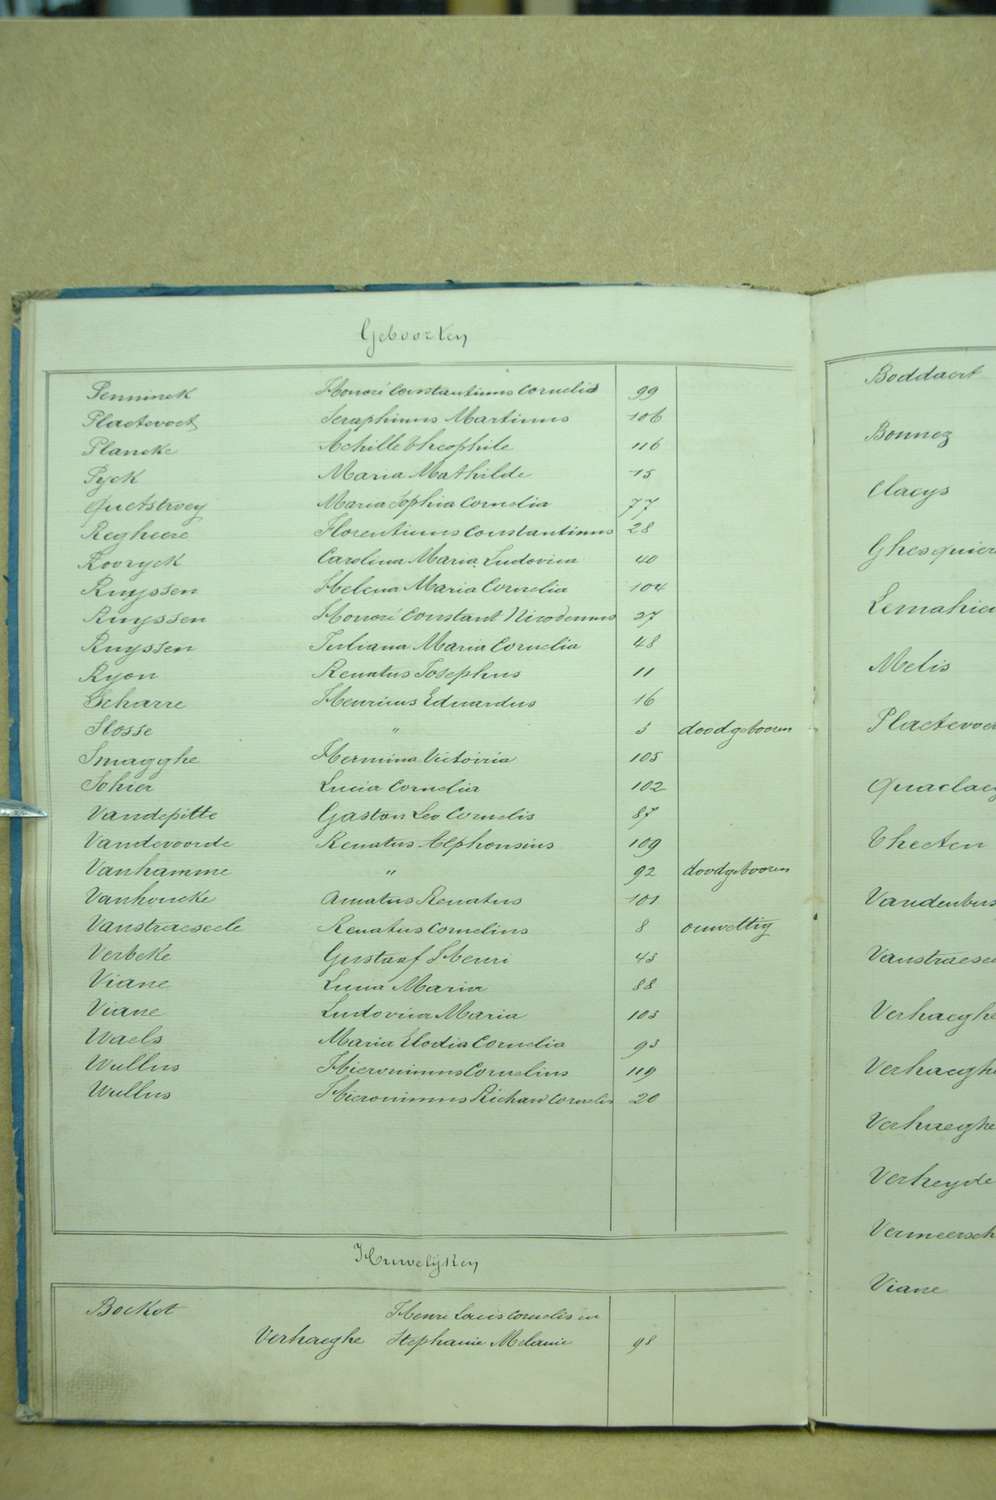 Geboorten
Penninck Honoré Constantinus Cornelis 99
Plaetevoet Seraphinus Martinus 106
Plancke Achille Theophile 116
Pyck Maria Mathilde 15
Quetstroey Maria Sophia Cornelia 77
Regheere Florentinus Constantinus 28
Rooryck Carolina Maria Ludovica 40
Ruyssen Helena Maria Cornelia 104
Ruyssen Honoré Constant Nicodemus 27
Ruyssen Juliana Maria Cornelia 48
Ryon Renatus Josephus 11
Scharre Henricus Eduardus 16
Slosse " 5 doodgebooren
Smagghe Hermina Victoiria 105
Sohier Lucia Cornelia 102
Vandepitte Gaston Leo Cornelis 87
Vandevoorde Renatus Alphonsius 109
Vanhamme " 92 doodgebooren
Vanhoucke Amatus Renatus 101
Vanstraeseele Renatus Cornelius 8 onwettig
Verbeke Gustaaf Henri 45
Viane Lucia Maria 88
Viane Ludovica Maria 103
Waels Maria Elodia Cornelia 93
Wullus Hieronimus Cornelius 119
Wullus Hieronimus Richard Cornelis 20
Huwelijken
Bockot Henri Louis Cornelis en
Verhaeghe Stephanie Melanie 98
Boddaert
Bonnez
Claeys
Ghesquier
Lemahieu
Melis
Plaetevoet
Quaelaey
Theeten
Vandenbus
Vanstraesee
Verhaeghe
Verhaeghe
Verhaeghe
Verheyde
Vermeersch
Viane